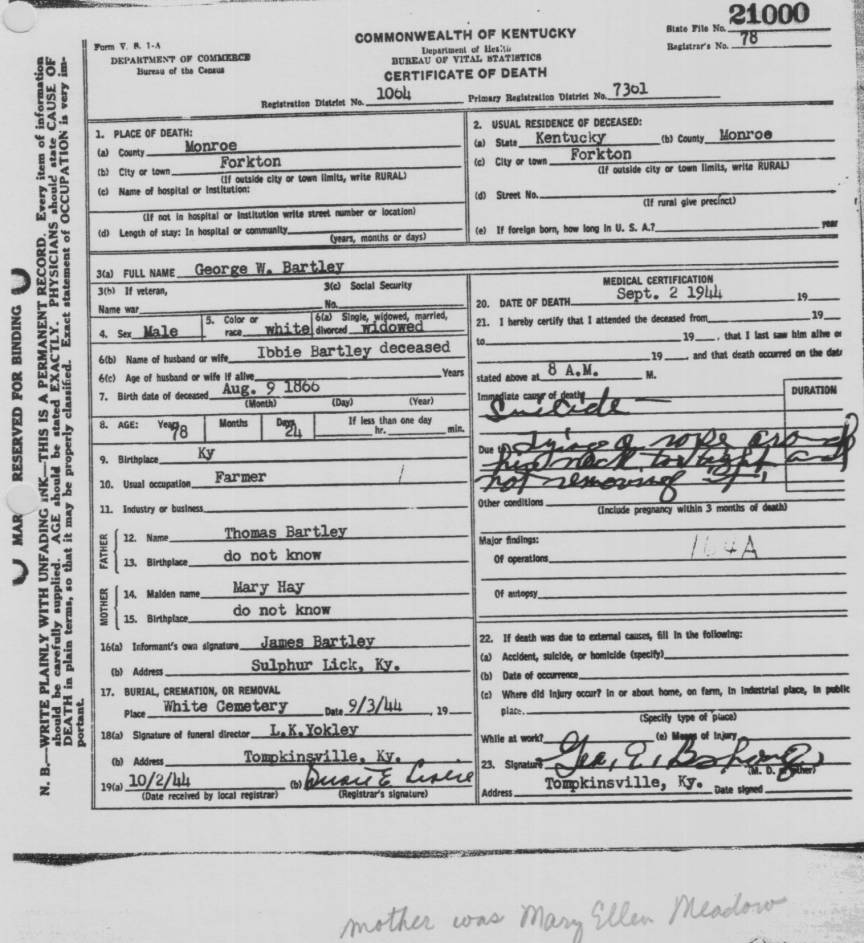 21000
COMMONWEALTH OF KENTUCKY
State File No.
Form V. S. 1-A
Department of Health
Registrar's No. 78
DEPARTMENT OF COMMERCE
BUREAU OF VITAL STATISTICS
Bureau of the Census
CERTIFICATE OF DEATH
Registration District No. 1064 Primary Registration District No. 7361
MAR RESERVED FOR BINDING
N. B.—WRITE PLAINLY WITH UNFADING INK—THIS IS A PERMANENT RECORD. Every item of information
should be carefully supplied. AGE should be stated EXACTLY. PHYSICIANS should state CAUSE OF
DEATH in plain terms, so that it may be properly classified. Exact statement of OCCUPATION is very im-
portant.
1. PLACE OF DEATH:
(a) County Monroe
(b) City or town Forkton
(If outside city or town limits, write RURAL)
(c) Name of hospital or institution:
(If not in hospital or institution write street number or location)
(d) Length of stay: In hospital or community
(years, months or days)
2. USUAL RESIDENCE OF DECEASED:
(a) State Kentucky (b) County Monroe
(c) City or town Forkton
(If outside city or town limits, write RURAL)
(d) Street No.
(If rural give precinct)
(e) If foreign born, how long in U. S. A.? year
3(a) FULL NAME George W. Bartley
3(b) If veteran, 3(c) Social Security
Name war No.
4. Sex Male 5. Color or race white 6(a) Single, widowed, married, divorced widowed
6(b) Name of husband or wife Ibbie Bartley deceased
6(c) Age of husband or wife if alive Years
7. Birth date of deceased Aug. 9 1866
(Month) (Day) (Year)
8. AGE: Years 78 Months Days 24 If less than one day
hr. min.
9. Birthplace Ky
10. Usual occupation Farmer
11. Industry or business
FATHER
12. Name Thomas Bartley
13. Birthplace do not know
MOTHER
14. Maiden name Mary Hay
15. Birthplace do not know
16(a) Informant's own signature James Bartley
(b) Address Sulphur Lick, Ky.
17. BURIAL, CREMATION, OR REMOVAL
Place White Cemetery Date 9/3/44, 19
18(a) Signature of funeral director L.K.Yokley
(b) Address Tompkinsville, Ky.
19(a) 10/2/44 (b)
(Date received by local registrar) (Registrar's signature)
MEDICAL CERTIFICATION
20. DATE OF DEATH Sept. 2 1944 19
21. I hereby certify that I attended the deceased from 19
to 19, that I last saw him alive on
19, and that death occurred on the date
stated above at 8 A.M. M.
Immediate cause of death DURATION
Suicide
Due to Tying a rope around
his neck too tight and
not removing it.
Other conditions
(Include pregnancy within 3 months of death)
Major findings: 164A
Of operations
Of autopsy
22. If death was due to external causes, fill in the following:
(a) Accident, suicide, or homicide (specify)
(b) Date of occurrence
(c) Where did injury occur? in or about home, on farm, in industrial place, in public
place.
(Specify type of place)
While at work? (e) Means of Injury
23. Signature Geo. E.
(M. D. or other)
Address Tompkinsville, Ky. Date signed
mother was Mary Ellen Meadow